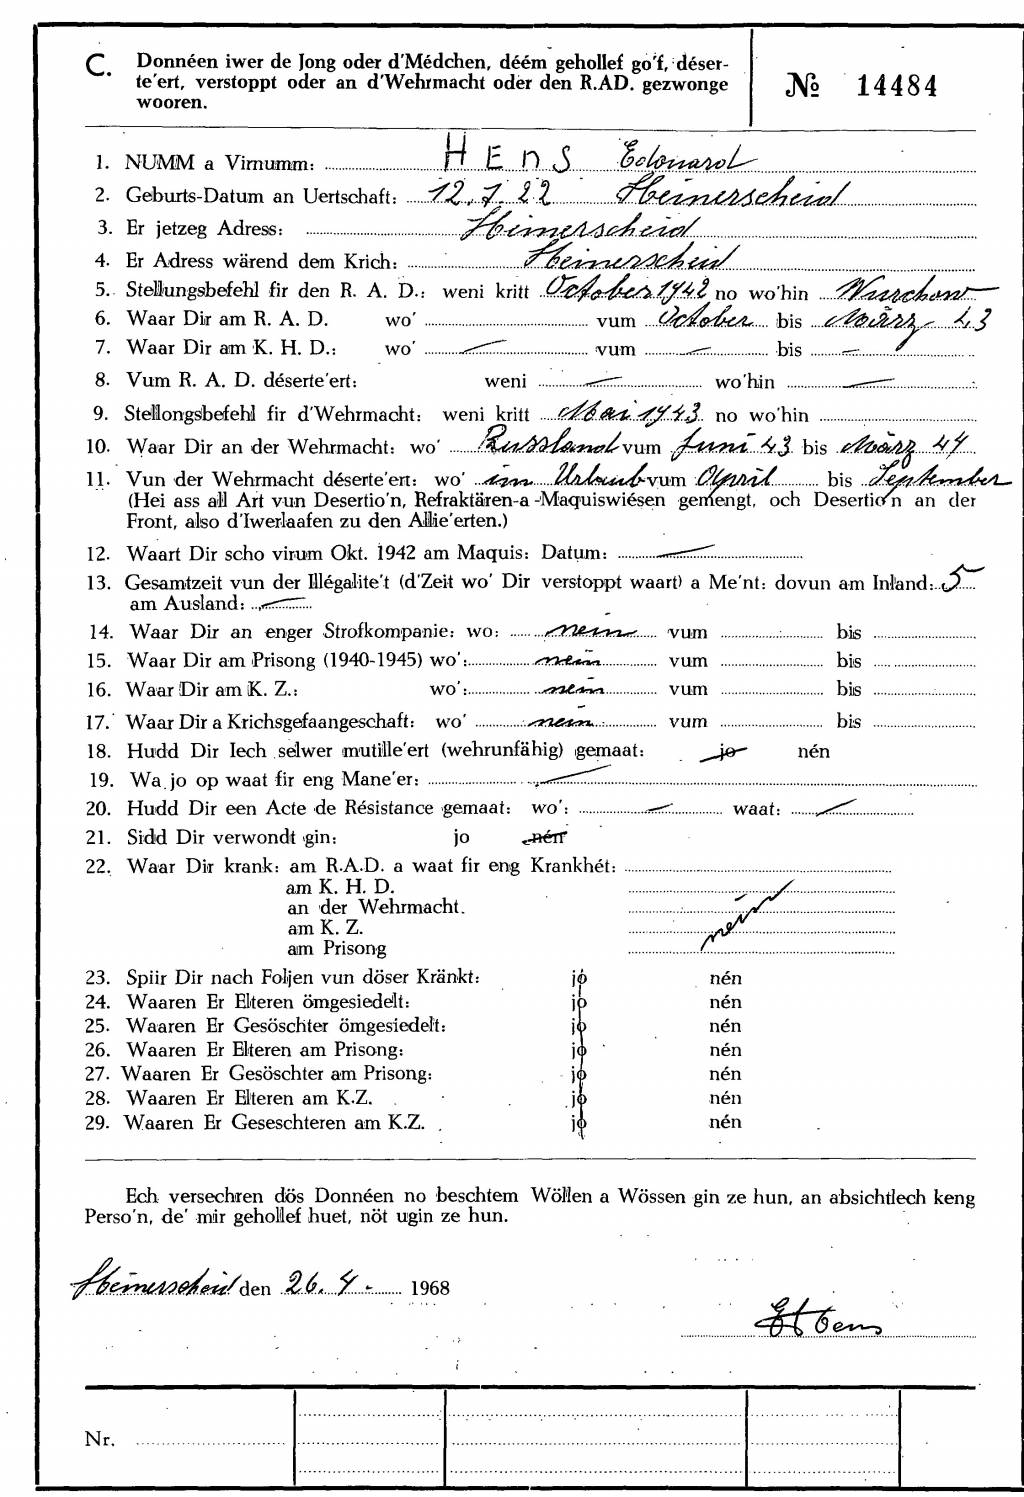 C. Donnéen iwer de Jong oder d'Médchen, déém gehollef go'f, déser-
te'ert, verstoppt oder an d'Wehrmacht oder den R.AD. gezwonge
wooren.
№ 14484
1. NUMM a Virnumm: HENS Edouard
2. Geburts-Datum an Uertschaft: 12.7.22 Heinerscheid
3. Er jetzeg Adress: Heinerscheid
4. Er Adress wärend dem Krich: Heinerscheid
5. Stellungsbefehl fir den R. A. D.: weni kritt October 1942 no wo'hin Wurchow
6. Waar Dir am R. A. D. wo' vum October bis März 43
7. Waar Dir am K. H. D.: wo' — vum — bis —
8. Vum R. A. D. déserte'ert: weni — wo'hin —
9. Stellongsbefehl fir d'Wehrmacht: weni kritt Mai 1943 no wo'hin
10. Waar Dir an der Wehrmacht: wo' Russland vum Juni 43 bis März 44
11. Vun der Wehrmacht déserte'ert: wo' im Urlaub vum April bis September
(Hei ass all Art vun Desertio'n, Refraktären-a -Maquiswiésen gemengt, och Desertio'n an der
Front, also d'Iwerlaafen zu den Allie'erten.)
12. Waart Dir scho virum Okt. 1942 am Maquis: Datum: —
13. Gesamtzeit vun der Illégalite't (d'Zeit wo' Dir verstoppt waart) a Me'nt: dovun am Inland: 5
am Ausland: —
14. Waar Dir an enger Strofkompanie: wo: nein vum bis
15. Waar Dir am Prisong (1940-1945) wo': nein vum bis
16. Waar Dir am K. Z.: wo': nein vum bis
17. Waar Dir a Krichsgefaangeschaft: wo' nein vum bis
18. Hudd Dir Iech selwer mutille'ert (wehrunfähig) gemaat: jo nén
19. Wa jo op waat fir eng Mane'er: —
20. Hudd Dir een Acte de Résistance gemaat: wo': — waat: —
21. Sidd Dir verwondt gin: jo nén
22. Waar Dir krank: am R.A.D. a waat fir eng Krankhét:
am K. H. D.
an der Wehrmacht.
am K. Z.
am Prisong
nein
23. Spiir Dir nach Foljen vun döser Kränkt: jó nén
24. Waaren Er Elteren ömgesiedelt: jo nén
25. Waaren Er Gesöschter ömgesiedelt: jo nén
26. Waaren Er Elteren am Prisong: jo nén
27. Waaren Er Gesöschter am Prisong: jo nén
28. Waaren Er Elteren am K.Z. jo nén
29. Waaren Er Geseschteren am K.Z. jo nén
Ech versechren dös Donnéen no beschtem Wöllen a Wössen gin ze hun, an absichtlech keng
Perso'n, de' mir gehollef huet, nöt ugin ze hun.
Heinerscheid den 26.4.- 1968
EHens
Nr.